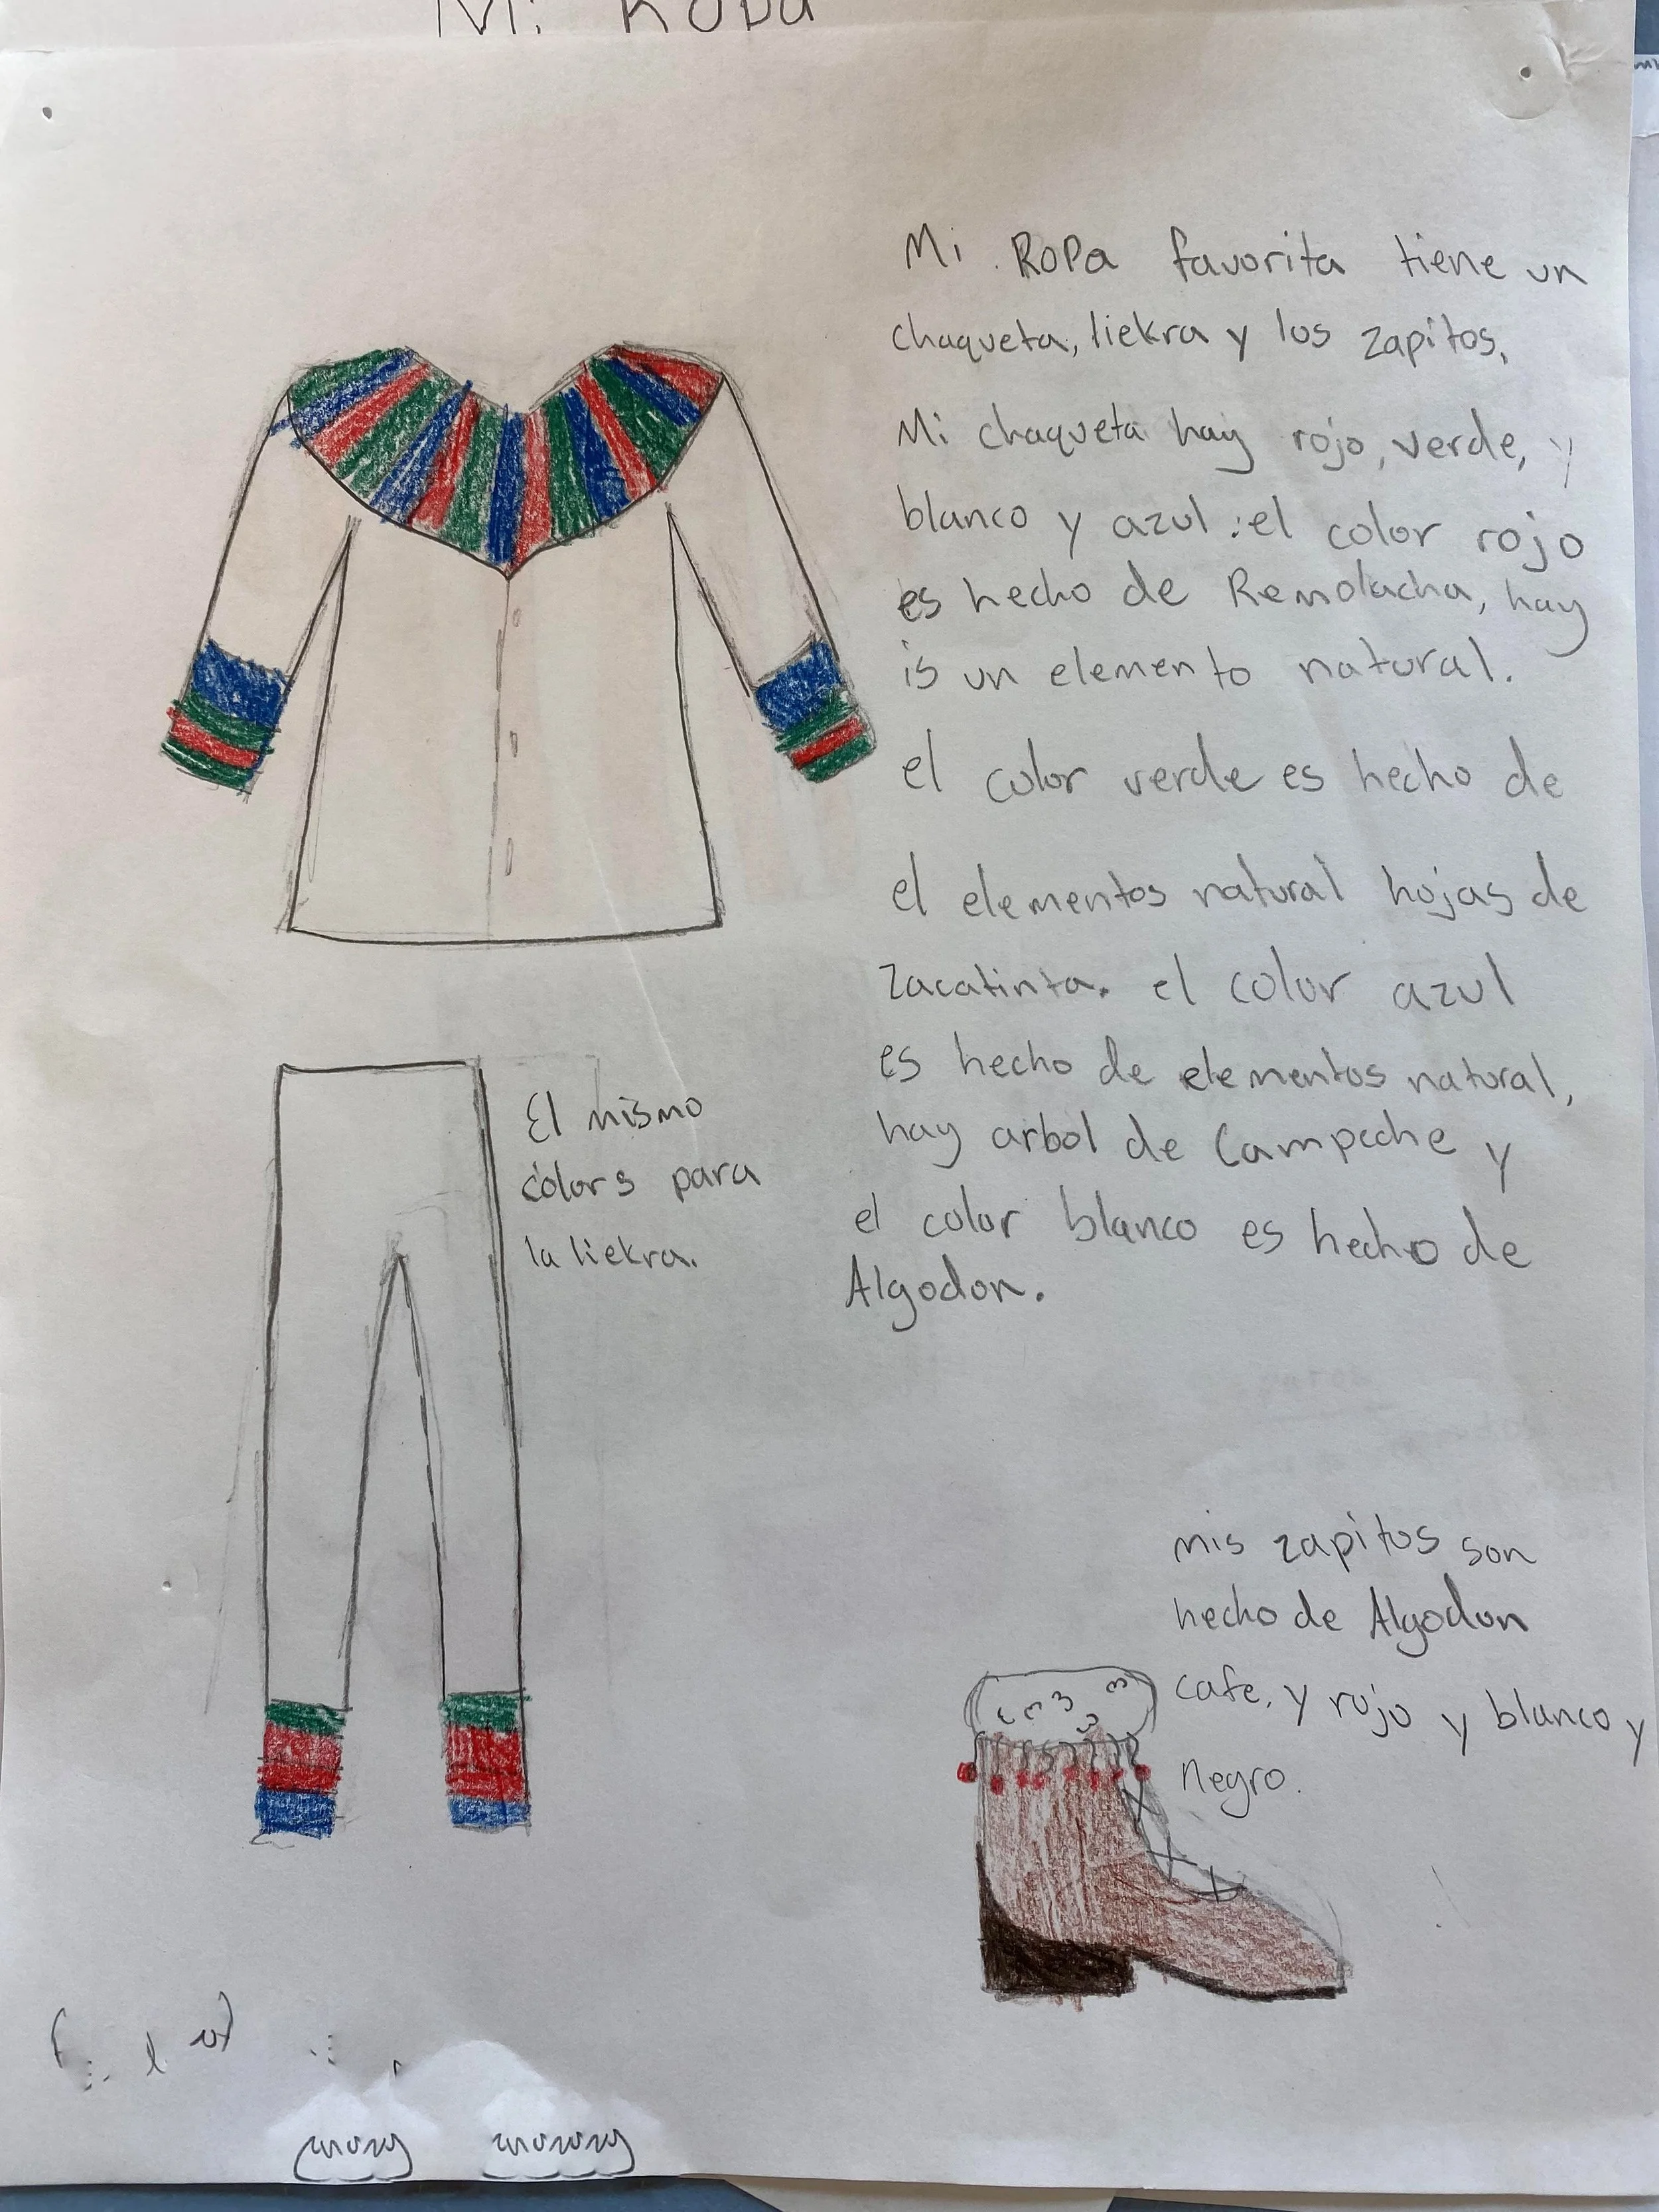 Mi Ropa
Mi Ropa favorita tiene un
chaqueta, liekra y los zapitos.
Mi chaqueta hay rojo, verde, y
blanco y azul. el color rojo
es hecho de Remolacha, hay
is un elemento natural.
el color verde es hecho de
el elementos natural hojas de
Zacatinta. el color azul
es hecho de elementos natural,
hay arbol de Campeche y
el color blanco es hecho de
Algodon.
El mismo
colors para
la liekra.
mis zapitos son
hecho de Algodon
cafe, y rojo y blanco y
negro.